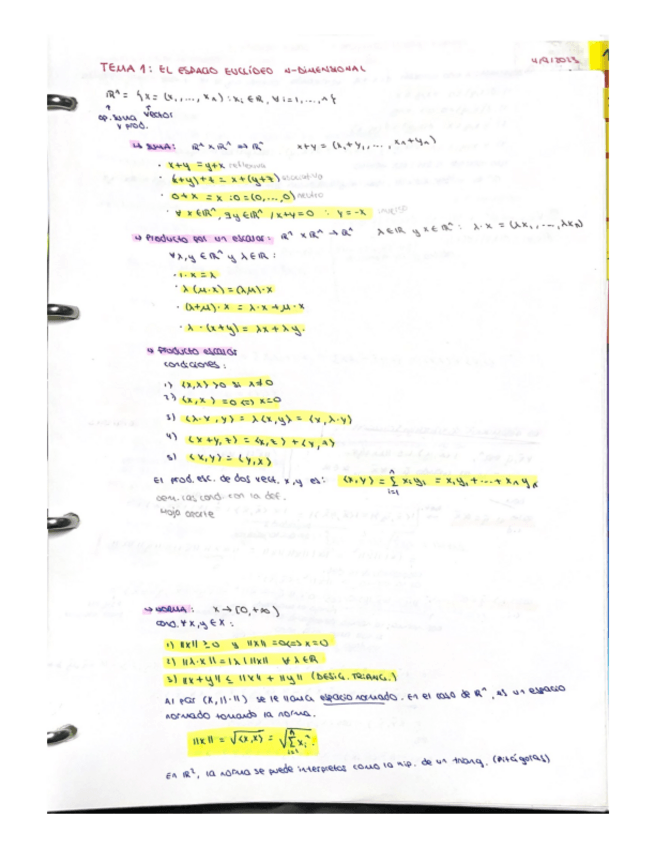 TEMA 1: EL ESPACIO EUCLÍDEO N-DIMENSIONAL
ℝⁿ = {x = (x₁, ..., xₙ) : xᵢ ∈ ℝ, ∀ i = 1, ..., n}
op. suma vector
y prod.
↳ SUMA: ℝⁿ × ℝⁿ → ℝⁿ x+y = (x₁+y₁, ..., xₙ+yₙ)
· x+y = y+x reflexiva
· (x+y)+z = x+(y+z) asociativa
· 0+x = x : 0 = (0, ..., 0) neutro
· ∀ x ∈ ℝⁿ, ∃y ∈ ℝⁿ / x+y = 0 : y = -x
↳ Producto por un escalar: ℝⁿ × ℝⁿ → ℝⁿ λ ∈ ℝ y x ∈ ℝⁿ : λ·x = (λx₁, ..., λxₙ)
∀x,y ∈ ℝⁿ y λ ∈ ℝ :
· λ(μ·x) = (λμ)·x
· (λ+μ)·x = λ·x + μ·x
· λ·(x+y) = λx + λy.
↳ Producto escalar
condiciones:
1) ⟨x,x⟩ > 0 si x≠0
2) ⟨x,x⟩ = 0 ⟺ x=0
3) ⟨λ·x, y⟩ = λ⟨x,y⟩ = ⟨x, λ·y⟩
4) ⟨x+y, z⟩ = ⟨x,z⟩ + ⟨y,z⟩
5) ⟨x,y⟩ = ⟨y,x⟩
El prod. esc. de dos vect. x,y es: ⟨x,y⟩ = Σⁿᵢ₌₁ xᵢyᵢ = x₁y₁ + ... + xₙyₙ
dem. las cond. con la def.
hoja aparte
↳ NORMA: X → [0, +∞)
cond. ∀x,y ∈ X :
1) ||x|| ≥ 0 y ||x|| = 0 ⟺ x=0
2) ||λ·x|| = |λ| ||x|| ∀ λ ∈ ℝ
3) ||x+y|| ≤ ||x|| + ||y|| (DESIG. TRIANG.)
Al par (X, ||·||) se le llama espacio normado. En el caso de ℝⁿ, es un espacio
normado tomando la norma.
||x|| = √⟨x,x⟩ = √Σⁿᵢ₌₁ xᵢ².
En ℝ², la norma se puede interpretar como la hip. de un triang. (Pitágoras)